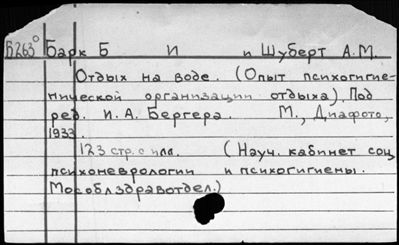 Б263⁰ Барк Б И и Шуберт А.М.
Отдых на воде. (Опыт психогигие-
нической организации отдыха). Под
ред. И.А. Бергера. М., Диафото,
1933.
123 стр. с илл. (Науч. кабинет соц
психоневрологии и психогигиены.
Мособлздравотдел.)